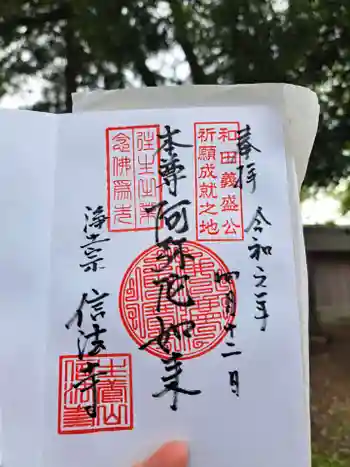 奉拝
令和元年
四月十二日
和田義盛公
祈願成就之地
本尊阿弥陀如来
往生之業
念佛為先
浄土宗
信法寺